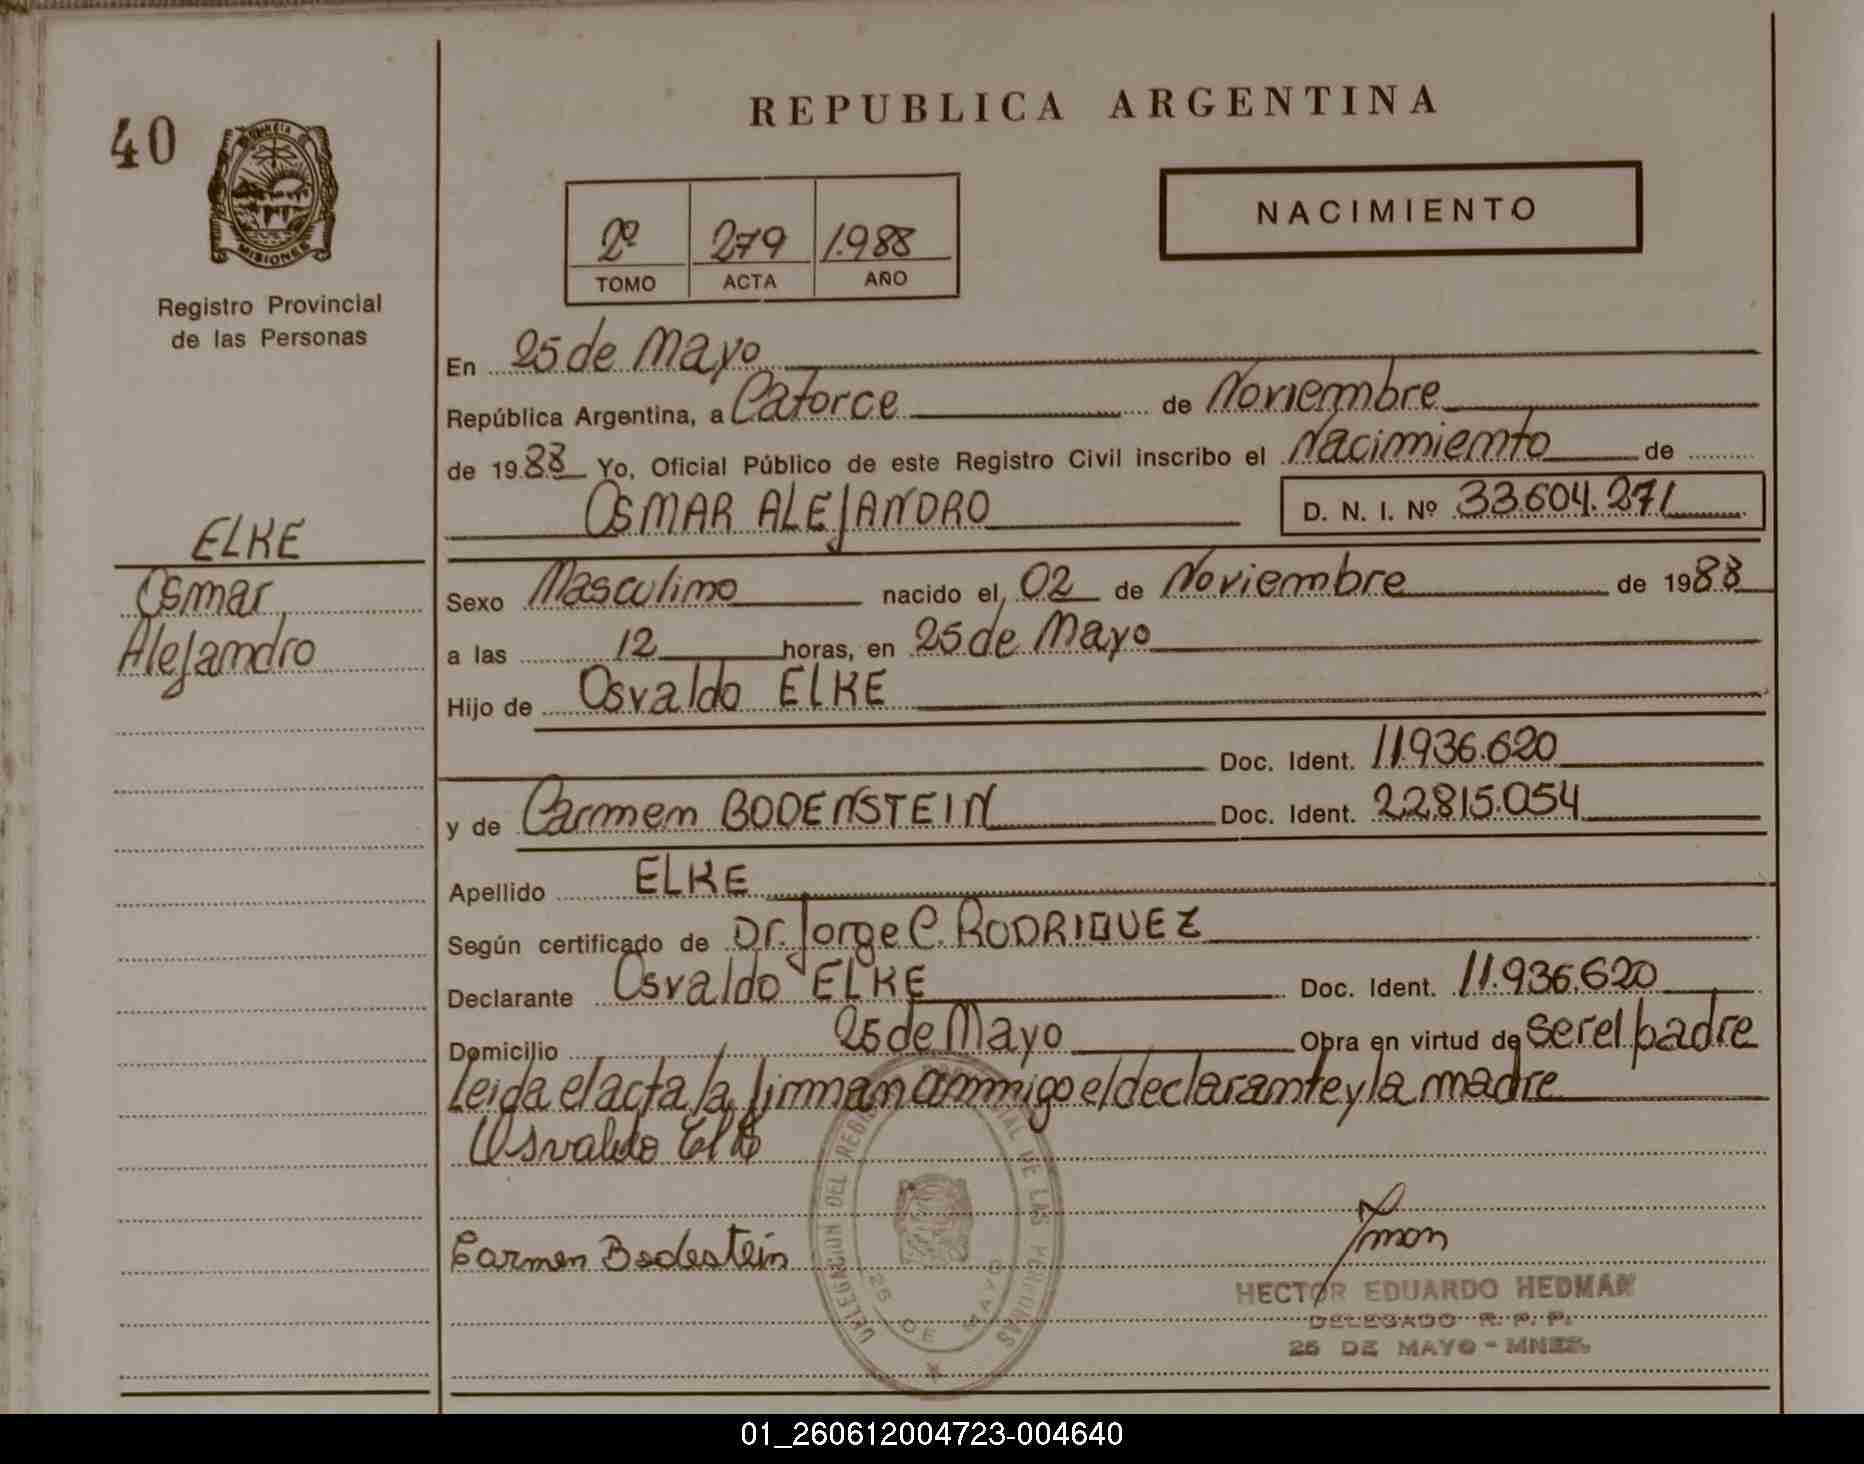 40
PROVINCIA
MISIONES
Registro Provincial
de las Personas
ELKE
Osmar
Alejandro
REPUBLICA ARGENTINA
2º 279 1.988
TOMO ACTA AÑO
NACIMIENTO
En 25 de Mayo
República Argentina, a Catorce de Noviembre
de 1988 Yo, Oficial Público de este Registro Civil inscribo el Nacimiento de
OSMAR ALEJANDRO D. N. I. Nº 33.604.271
Sexo Masculino nacido el 02 de Noviembre de 1988
a las 12 horas, en 25 de Mayo
Hijo de Osvaldo ELKE
Doc. Ident. 11.936.620
y de Carmen BODENSTEIN Doc. Ident. 22.815.054
Apellido ELKE
Según certificado de Dr. Jorge C. RODRIGUEZ
Declarante Osvaldo ELKE Doc. Ident. 11.936.620
Domicilio 25 de Mayo Obra en virtud de ser el padre
Leida el acta la firman conmigo el declarante y la madre
Osvaldo Elke
Carmen Bodestein
DELEGACION DEL REGISTRO PROVINCIAL DE LAS PERSONAS
25 DE MAYO
HECTOR EDUARDO HEDMAN
DELEGADO R. P. P.
25 DE MAYO - MNES.
01_260612004723-004640